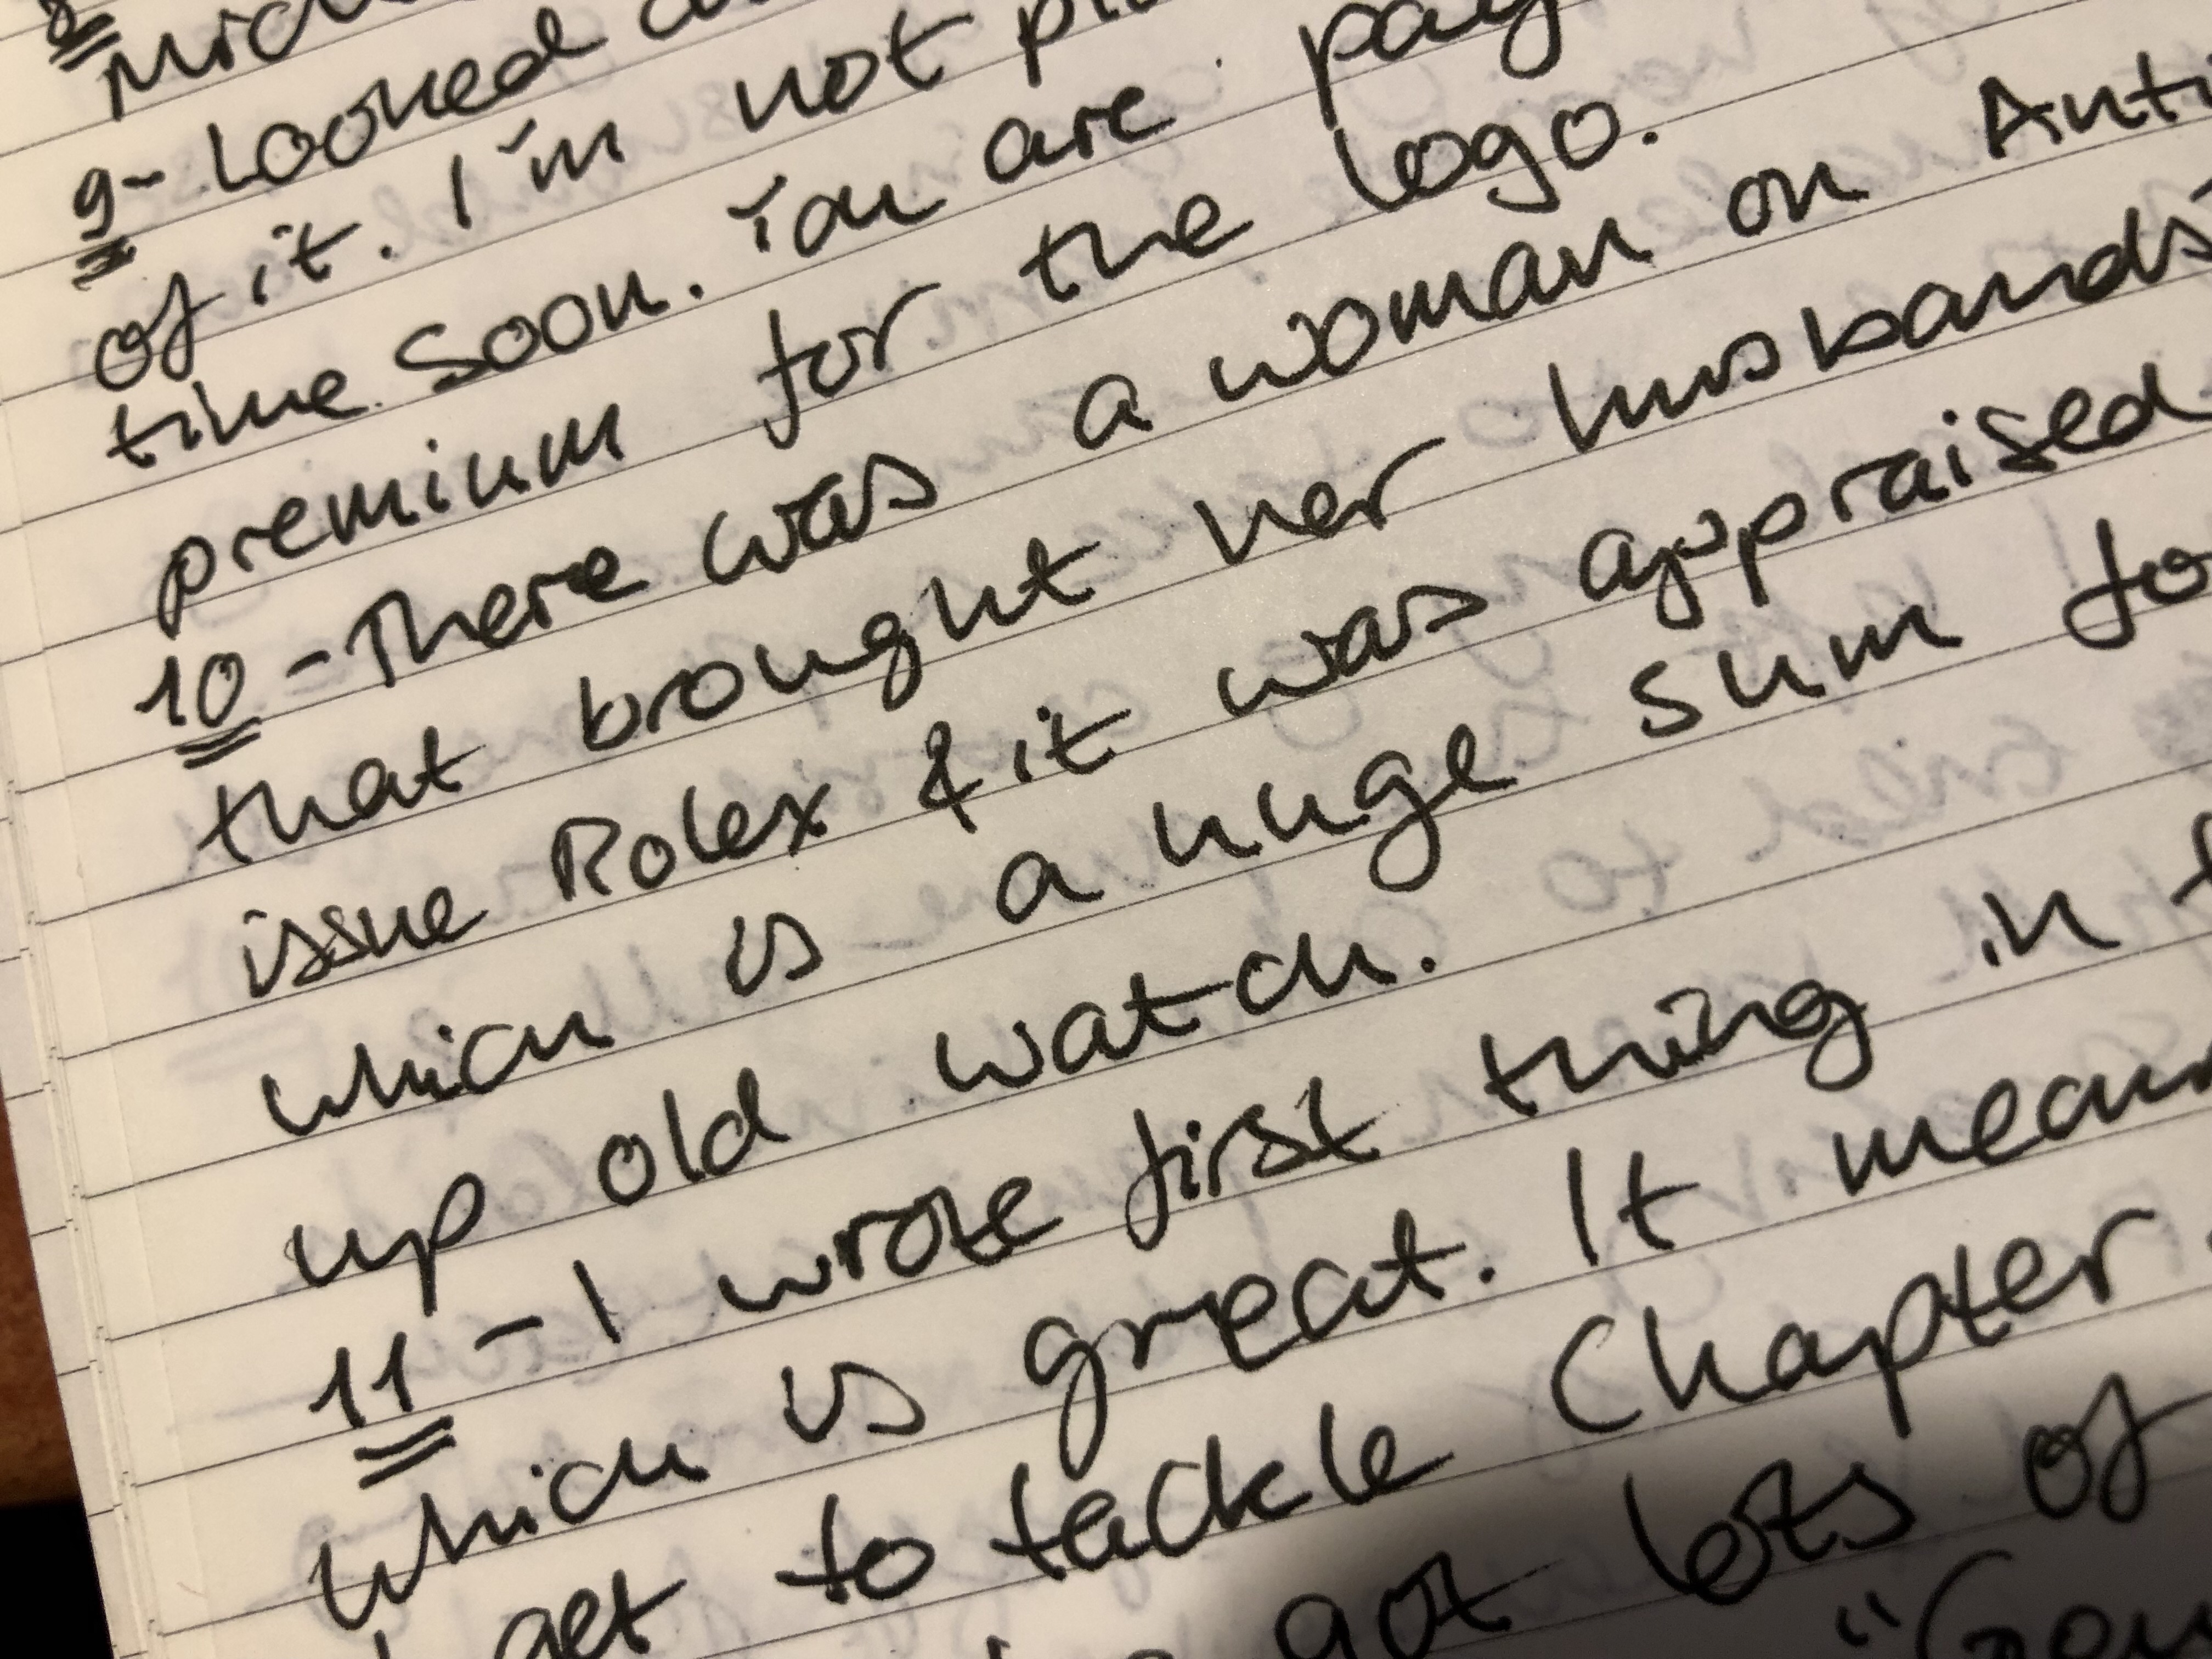 9- Looked
of it. I'm not
time soon. You are pay
premium for the logo.
10 - There was a woman on Anti
that brought her husbands
issue Rolex & it was appraised
which is a huge sum fo
up old watch.
11 - I wrote first thing in
which is great. It mean
I get to tackle Chapter
got lots of